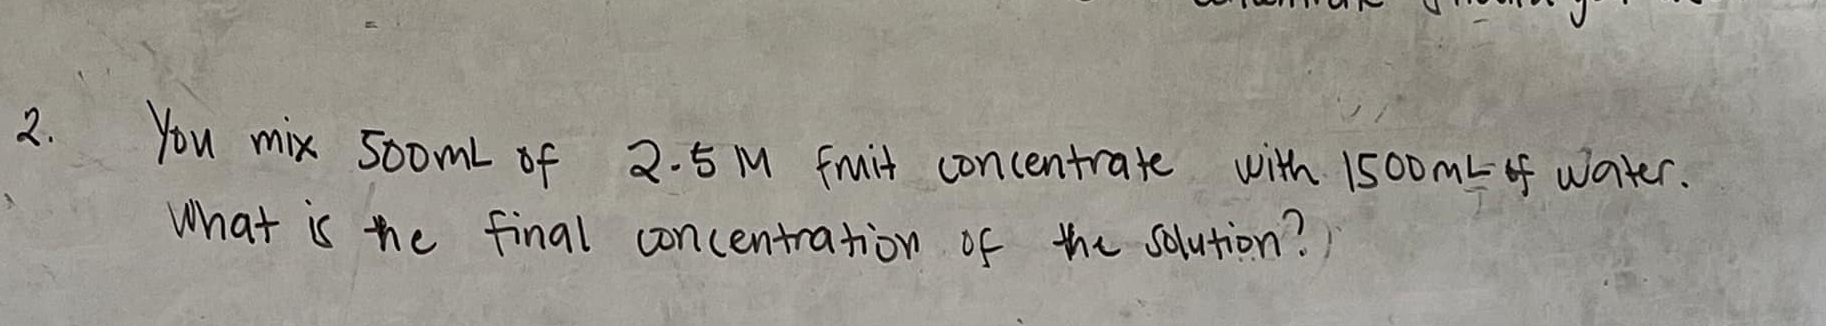 2. You mix 500mL of 2.5 M fruit concentrate with 1500mL of water.
What is the final concentration of the solution?